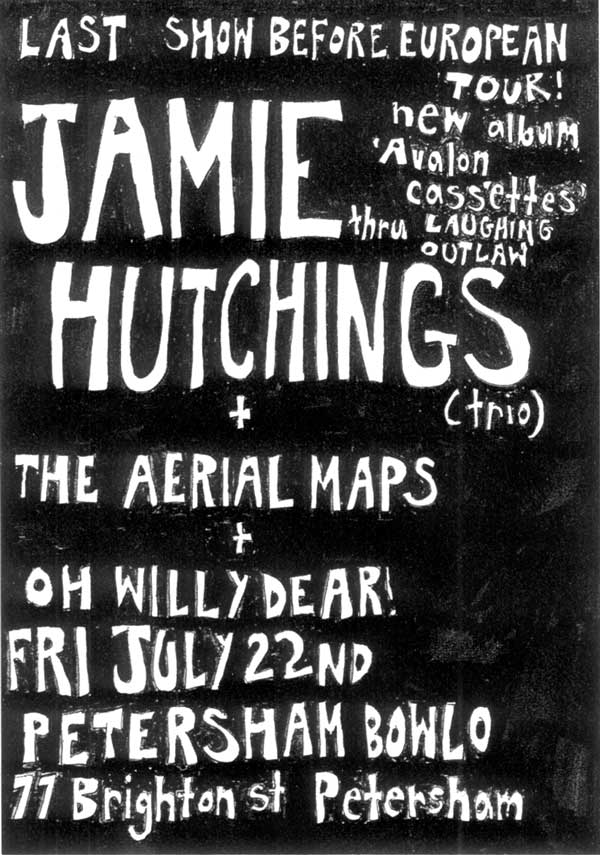 LAST SHOW BEFORE EUROPEAN
TOUR!
JAMIE
new album
'Avalon
cassettes'
thru LAUGHING
OUTLAW
HUTCHINGS
(trio)
+
THE AERIAL MAPS
+
OH WILLY DEAR!
FRI JULY 22ND
PETERSHAM BOWLO
77 Brighton st Petersham